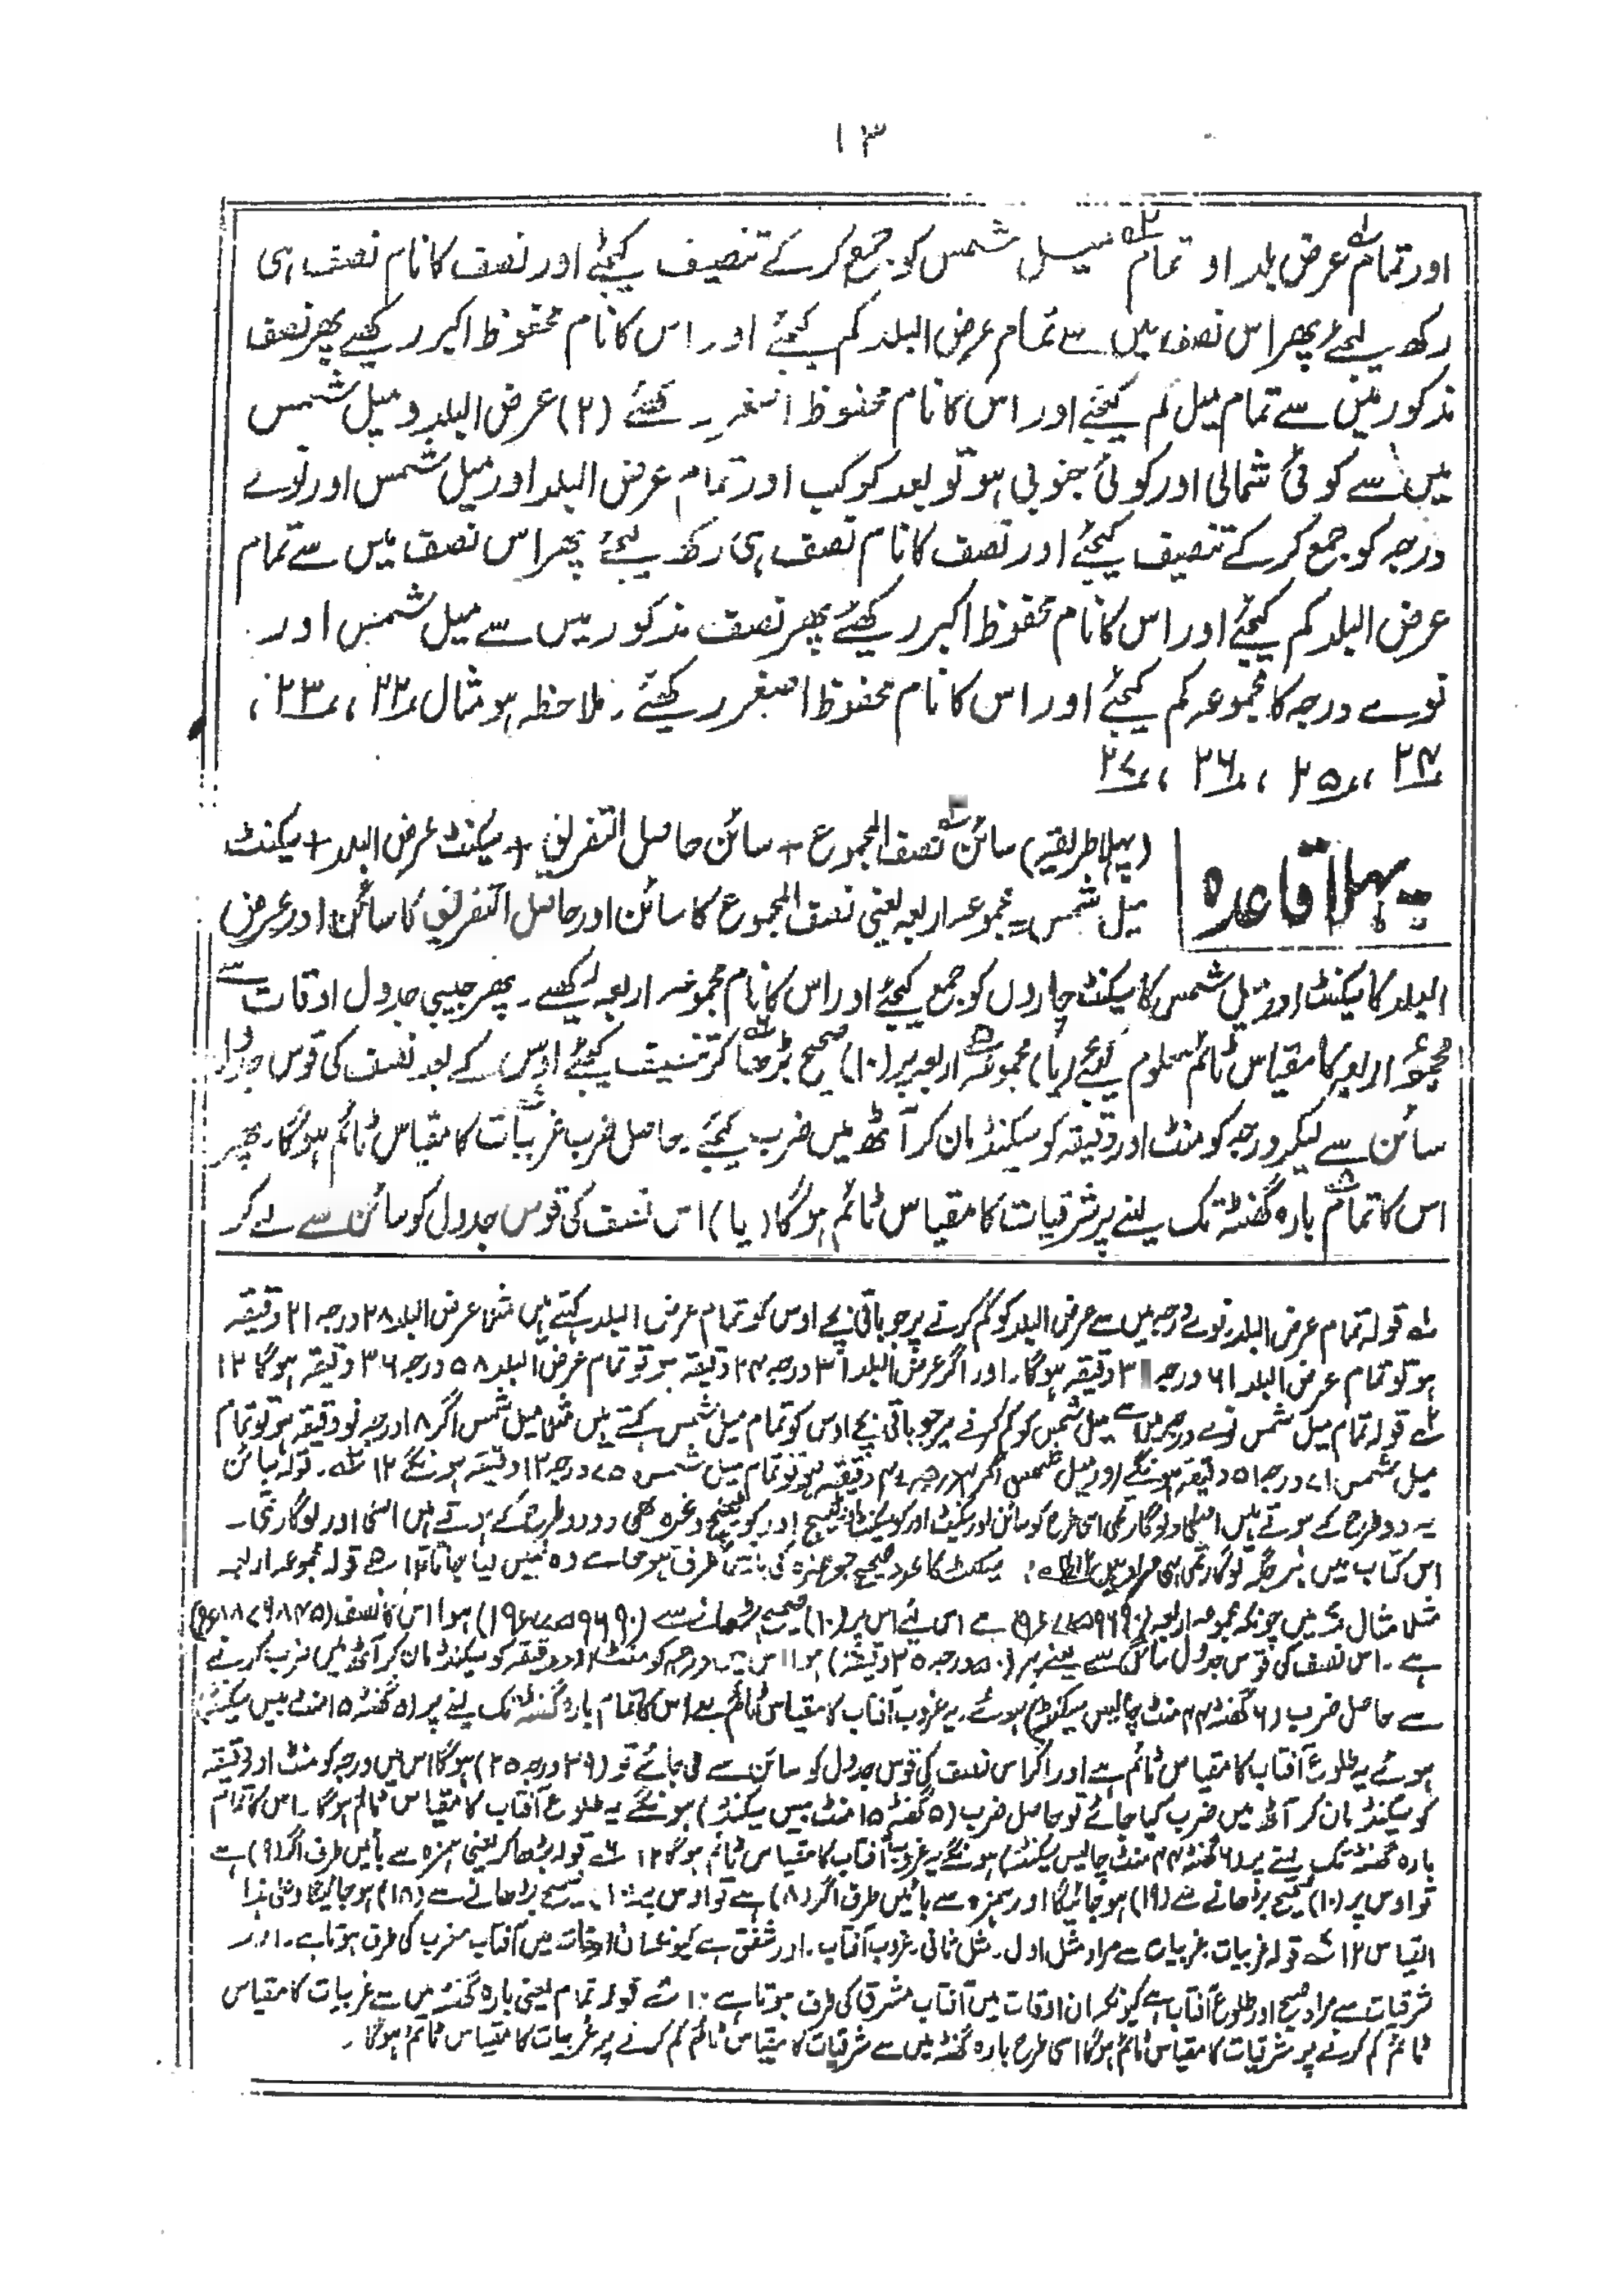 ۱۳
اور تمام عرض بلد او تمام میل شمس کو جمع کر کے تنصیف کیجئے اور نصف کا نام نصف ہی
رکھ لیجئے پھر اس نصف میں سے تمام عرض البلد کم کیجئے اور اس کا نام محفوظ اکبر رکھئے پھر نصف
مذکور میں سے تمام میل کم کیجئے اور اس کا نام محفوظ اصغر رکھئے (۲) عرض البلد و میل شمس
میں سے کوئی شمالی اور کوئی جنوبی ہو تو بعد کوکب اور تمام عرض البلد اور میل شمس اور نوے
درجہ کو جمع کر کے تنصیف کیجئے اور نصف کا نام نصف ہی رکھ لیجئے پھر اس نصف میں سے تمام
عرض البلد کم کیجئے اور اس کا نام محفوظ اکبر رکھئے پھر نصف مذکور میں سے میل شمس اور
نوے درجہ کا مجموعہ کم کیجئے اور اس کا نام محفوظ اصغر رکھئے ۔ ملاحظہ ہو مثال ۲۲، ۲۳،
۲۴، ۲۵، ۲۶، ۲۷
پہلا قاعدہ
(پہلا طریقہ) سائن نصف المجموع + سائن حاصل التفریق + سیکنٹ عرض البلد + سیکنٹ
میل شمس = مجموعہ اربعہ یعنی نصف المجموع کا سائن اور حاصل التفریق کا سائن اور عرض
البلد کا سیکنٹ اور میل شمس کا سیکنٹ چاروں کو جمع کیجئے اور اس کا نام مجموعہ اربعہ رکھئے ۔ پھر جیبی جدول اوقات سے
مجموعہ اربعہ کا مقیاس ٹائم معلوم کیجئے (یا) مجموعہ اربعہ پر (۱۰) صحیح بڑھا کر تنصیف کیجئے اوس کے بعد نصف کی قوس جدول
سائن سے لیکر درجہ کو منٹ اور دقیقہ کو سیکنڈ مان کر آٹھ میں ضرب کیجئے ۔ حاصل ضرب غربیات کا مقیاس ٹائم ہوگا ۔ پھر
اس کا تمام بارہ گھنٹہ تک لینے پر شرقیات کا مقیاس ٹائم ہوگا (یا) اس نصف کی قوس جدول کو سائن سے لے کر
۱ قولہ تمام عرض البلد، نوے درجہ میں سے عرض البلد کو کم کرنے پر جو باقی بچے اوس کو تمام عرض البلد کہتے ہیں مثلا عرض البلد ۲۸ درجہ ۲۱ دقیقہ
ہو تو تمام عرض البلد ۶۱ درجہ ۳۱ دقیقہ ہوگا ۔ اور اگر عرض البلد ۳۱ درجہ ۲۴ دقیقہ ہو تو تمام عرض البلد ۵۸ درجہ ۳۶ دقیقہ ہوگا ۱۲
۲ قولہ تمام میل شمس نوے درجہ میں سے میل شمس کو کم کرنے پر جو باقی بچے اوس کو تمام میل شمس کہتے ہیں مثلا میل شمس اگر ۱۸ درجہ نو دقیقہ ہو تو تمام
میل شمس ۷۱ درجہ ۵۱ دقیقہ ہونگے اور میل شمس اگر درجہ دقیقہ ہو تو تمام میل شمس ۷۵ درجہ ۱۳ دقیقہ ہونگے ۱۲ ۳ قولہ سائن
یہ دو طرح کے ہوتے ہیں اصلی و لوگارتمی اسی طرح کو سائن اور سیکنٹ اور کو سیکنٹ اور کو وغیرہ بھی دو دو طرح کے ہوتے ہیں اصلی اور لوگارتمی ۔
اس کتاب میں ہر جگہ لوگارتمی ہی مراد ہیں ۱۲ سیکنٹ کا عدد صحیح جو ہمزہ کی بائیں طرف ہوتا ہے وہ نہیں لیا جاتا ۱۲ ۵ قولہ مجموعہ اربعہ
مثلا مثال میں چونکہ مجموعہ اربعہ ہے اس لئے اس پر (۱۰) صحیح بڑھانے سے ہوا اس کا نصف
ہے ۔ اس نصف کی قوس جدول سائن سے لینے پر (۵۰ درجہ ۳۵ دقیقہ) ہوا اس درجہ کو منٹ اور دقیقہ کو سیکنڈ مان کر آٹھ میں ضرب کرنے
سے حاصل ضرب (۶ گھنٹہ ۴۴ منٹ چالیس سیکنڈ) ہوئے ۔ یہ غروب آفتاب کا مقیاس ٹائم ہے اس کا تمام بارہ گھنٹہ تک لینے پر (۵ گھنٹہ ۱۵ منٹ بیس سیکنڈ)
ہوئے یہ طلوع آفتاب کا مقیاس ٹائم ہے اور اگر اس نصف کی قوس جدول کو سائن سے لی جائے تو (۳۹ درجہ ۲۵) ہوگا اس میں درجہ کو منٹ اور دقیقہ
کو سیکنڈ مان کر آٹھ میں ضرب کیا جائے تو حاصل ضرب (۵ گھنٹہ ۱۵ منٹ بیس سیکنڈ) ہونگے یہ طلوع آفتاب کا مقیاس ٹائم ہوگا ۔ اس کا تمام
بارہ گھنٹہ تک لینے پر (۶ گھنٹہ ۴۴ منٹ چالیس سیکنڈ) ہونگے یہ غروب آفتاب کا مقیاس ٹائم ہوگا ۱۲ ۶ قولہ بڑھا کر یعنی ہمزہ سے بائیں طرف اگر (۹) ہے
تو اوس پر (۱۰) صحیح بڑھانے سے (۱۹) ہو جائیگا اور ہمزہ سے بائیں طرف اگر (۸) ہے تو اوس پر ۱۰ صحیح بڑھانے سے (۱۸) ہو جائیگا وعلی ہذا
القیاس ۱۲ ۷ قولہ غربیات ۔ غربیات سے مراد مثل اول ۔ مثل ثانی ۔ غروب آفتاب ۔ اور شفق ہے کیونکہ ان اوقات میں آفتاب مغرب کی طرف ہوتا ہے ۔ اور
شرقیات سے مراد صبح اور طلوع آفتاب ہے کیونکہ ان اوقات میں آفتاب مشرق کی طرف ہوتا ہے ۱۰ ۸ قولہ تمام یعنی بارہ گھنٹہ میں سے غربیات کا مقیاس
ٹائم کم کرنے پر شرقیات کا مقیاس ٹائم ہوگا اسی طرح بارہ گھنٹہ میں سے شرقیات کا مقیاس ٹائم کم کرنے پر غربیات کا مقیاس ٹائم ہوگا ۔